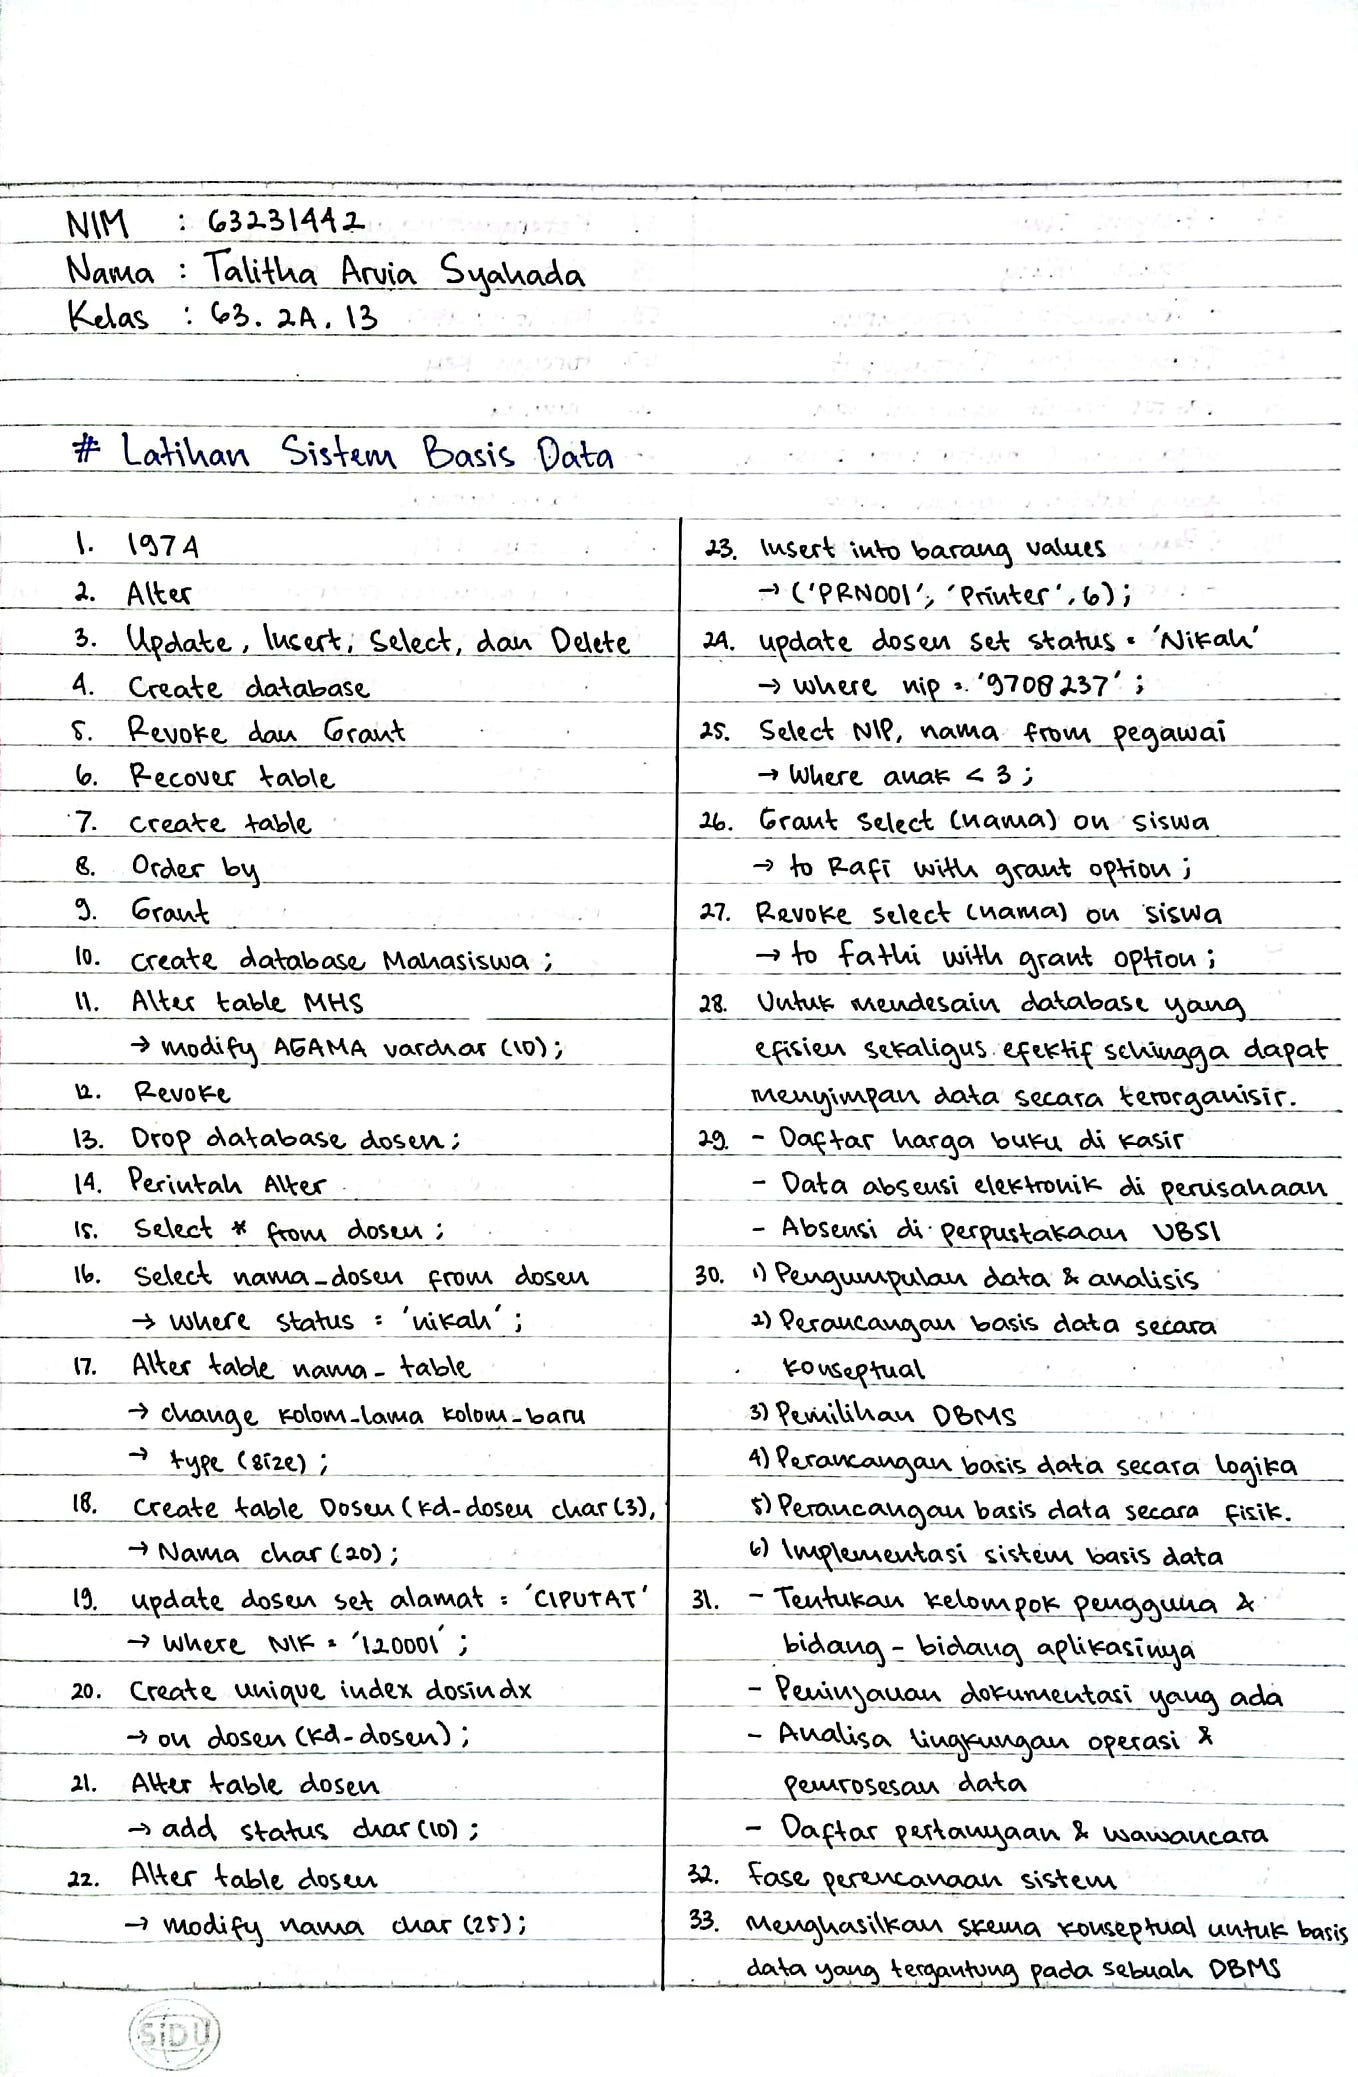 NIM : 63231442
Nama : Talitha Arvia Syahada
Kelas : 63. 2A. 13
# Latihan Sistem Basis Data
1. 1974
2. Alter
3. Update, Insert, Select, dan Delete
4. Create database
5. Revoke dan Grant
6. Recover table
7. create table
8. Order by
9. Grant
10. create database Mahasiswa ;
11. Alter table MHS
→ modify AGAMA varchar (10) ;
12. Revoke
13. Drop database dosen ;
14. Perintah Alter
15. Select * from dosen ;
16. Select nama_dosen from dosen
→ where status = 'nikah' ;
17. Alter table nama_table
→ change kolom_lama kolom_baru
→ type (size) ;
18. Create table Dosen (kd-dosen char (3),
→ Nama char (20) ;
19. update dosen set alamat = 'CIPUTAT'
→ where NIK = '120001' ;
20. Create unique index dosindx
→ on dosen (kd-dosen) ;
21. Alter table dosen
→ add status char (10) ;
22. Alter table dosen
→ modify nama char (25) ;
23. Insert into barang values
→ ('PRN001', 'Printer', 6) ;
24. update dosen set status = 'Nikah'
→ where nip = '9708237' ;
25. Select NIP, nama from pegawai
→ where anak < 3 ;
26. Grant select (nama) on siswa
→ to Rafi with grant option ;
27. Revoke select (nama) on siswa
→ to fathi with grant option ;
28. Untuk mendesain database yang
efisien sekaligus efektif sehingga dapat
menyimpan data secara terorganisir.
29. - Daftar harga buku di kasir
- Data absensi elektronik di perusahaan
- Absensi di perpustakaan UBSI
30. 1) Pengumpulan data & analisis
2) Perancangan basis data secara
konseptual
3) Pemilihan DBMS
4) Perancangan basis data secara logika
5) Perancangan basis data secara fisik.
6) Implementasi sistem basis data
31. - Tentukan kelompok pengguna &
bidang - bidang aplikasinya
- Peninjauan dokumentasi yang ada
- Analisa lingkungan operasi &
pemrosesan data
- Daftar pertanyaan & wawancara
32. Fase perencanaan sistem
33. Menghasilkan skema konseptual untuk basis
data yang tergantung pada sebuah DBMS
SiDU